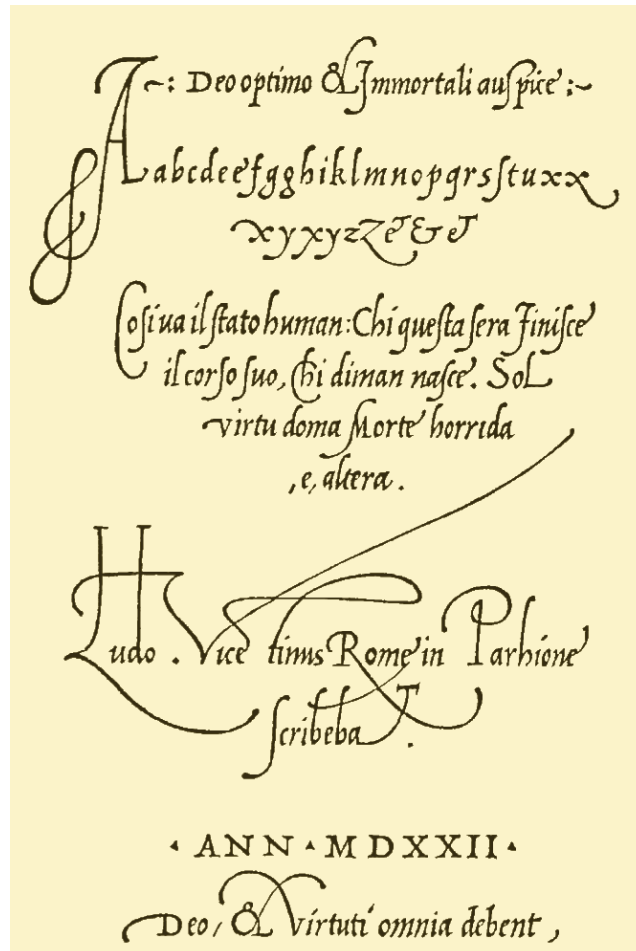 ~: Deo optimo & Immortali auſpice :~
A a b c d e e f g g h i k l m n o p q r s ſ t u x x
x y x y z Z & & &
Coſi va il ſtato human: Chi queſta ſera Finiſce
il corſo ſuo, Chi diman naſce. Sol
virtu doma Morte horrida
, e, altera.
Ludo. Vicetinus Rome in Parhione
ſcribebaT.
· ANN · MDXXII ·
Deo, & Virtuti omnia debent,